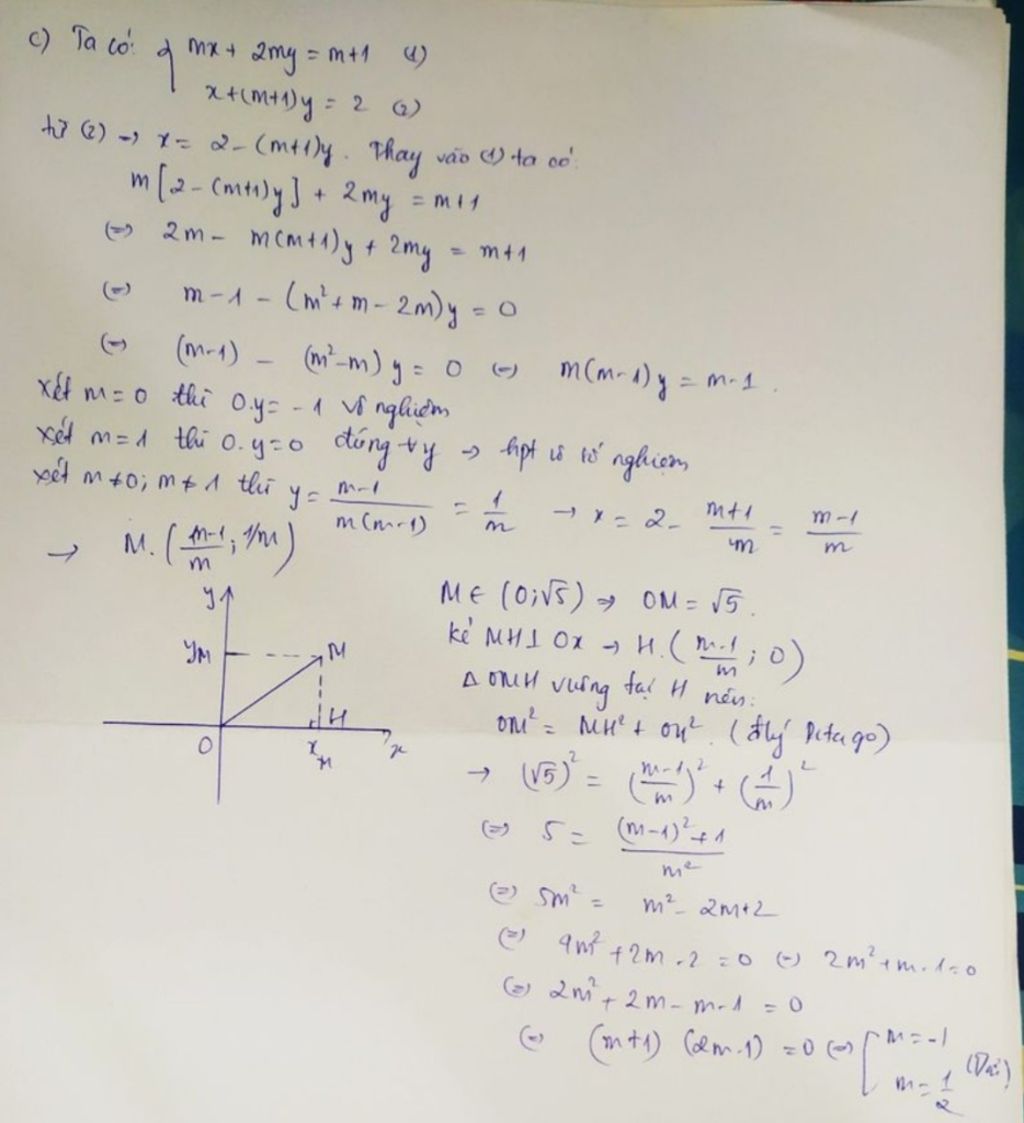 c) Ta có: { mx + 2my = m+1 (1)
x+(m+1)y = 2 (2)
từ (2) → x = 2-(m+1)y. Thay vào (1) ta có:
m[2-(m+1)y] + 2my = m+1
(=) 2m - m(m+1)y + 2my = m+1
(=) m-1-(m²+m-2m)y = 0
(=) (m-1) - (m²-m)y = 0 (=) m(m-1)y = m-1.
xét m=0 thì 0.y=-1 vô nghiệm
xét m=1 thì 0.y=0 đúng ∀y → hpt vô số nghiệm
xét m≠0; m≠1 thì y = (m-1)/(m(m-1)) = 1/m → x = 2 - (m+1)/m = (m-1)/m
→ M.((m-1)/m; 1/m)
y
yM
M
O
xM
H
x
M ∈ (O;√5) → OM = √5.
kẻ MH⊥Ox → H.((m-1)/m; 0)
Δ OMH vuông tại H nên:
OM² = MH² + OH². (đlý Pitago)
→ (√5)² = ((m-1)/m)² + (1/m)²
(=) 5 = ((m-1)²+1)/m²
(=) 5m² = m² - 2m+2
(=) 4m²+2m-2=0 (=) 2m²+m-1=0
(=) 2m²+2m-m-1 = 0
(=) (m+1)(2m-1) = 0 (=) [ m=-1
m=1/2